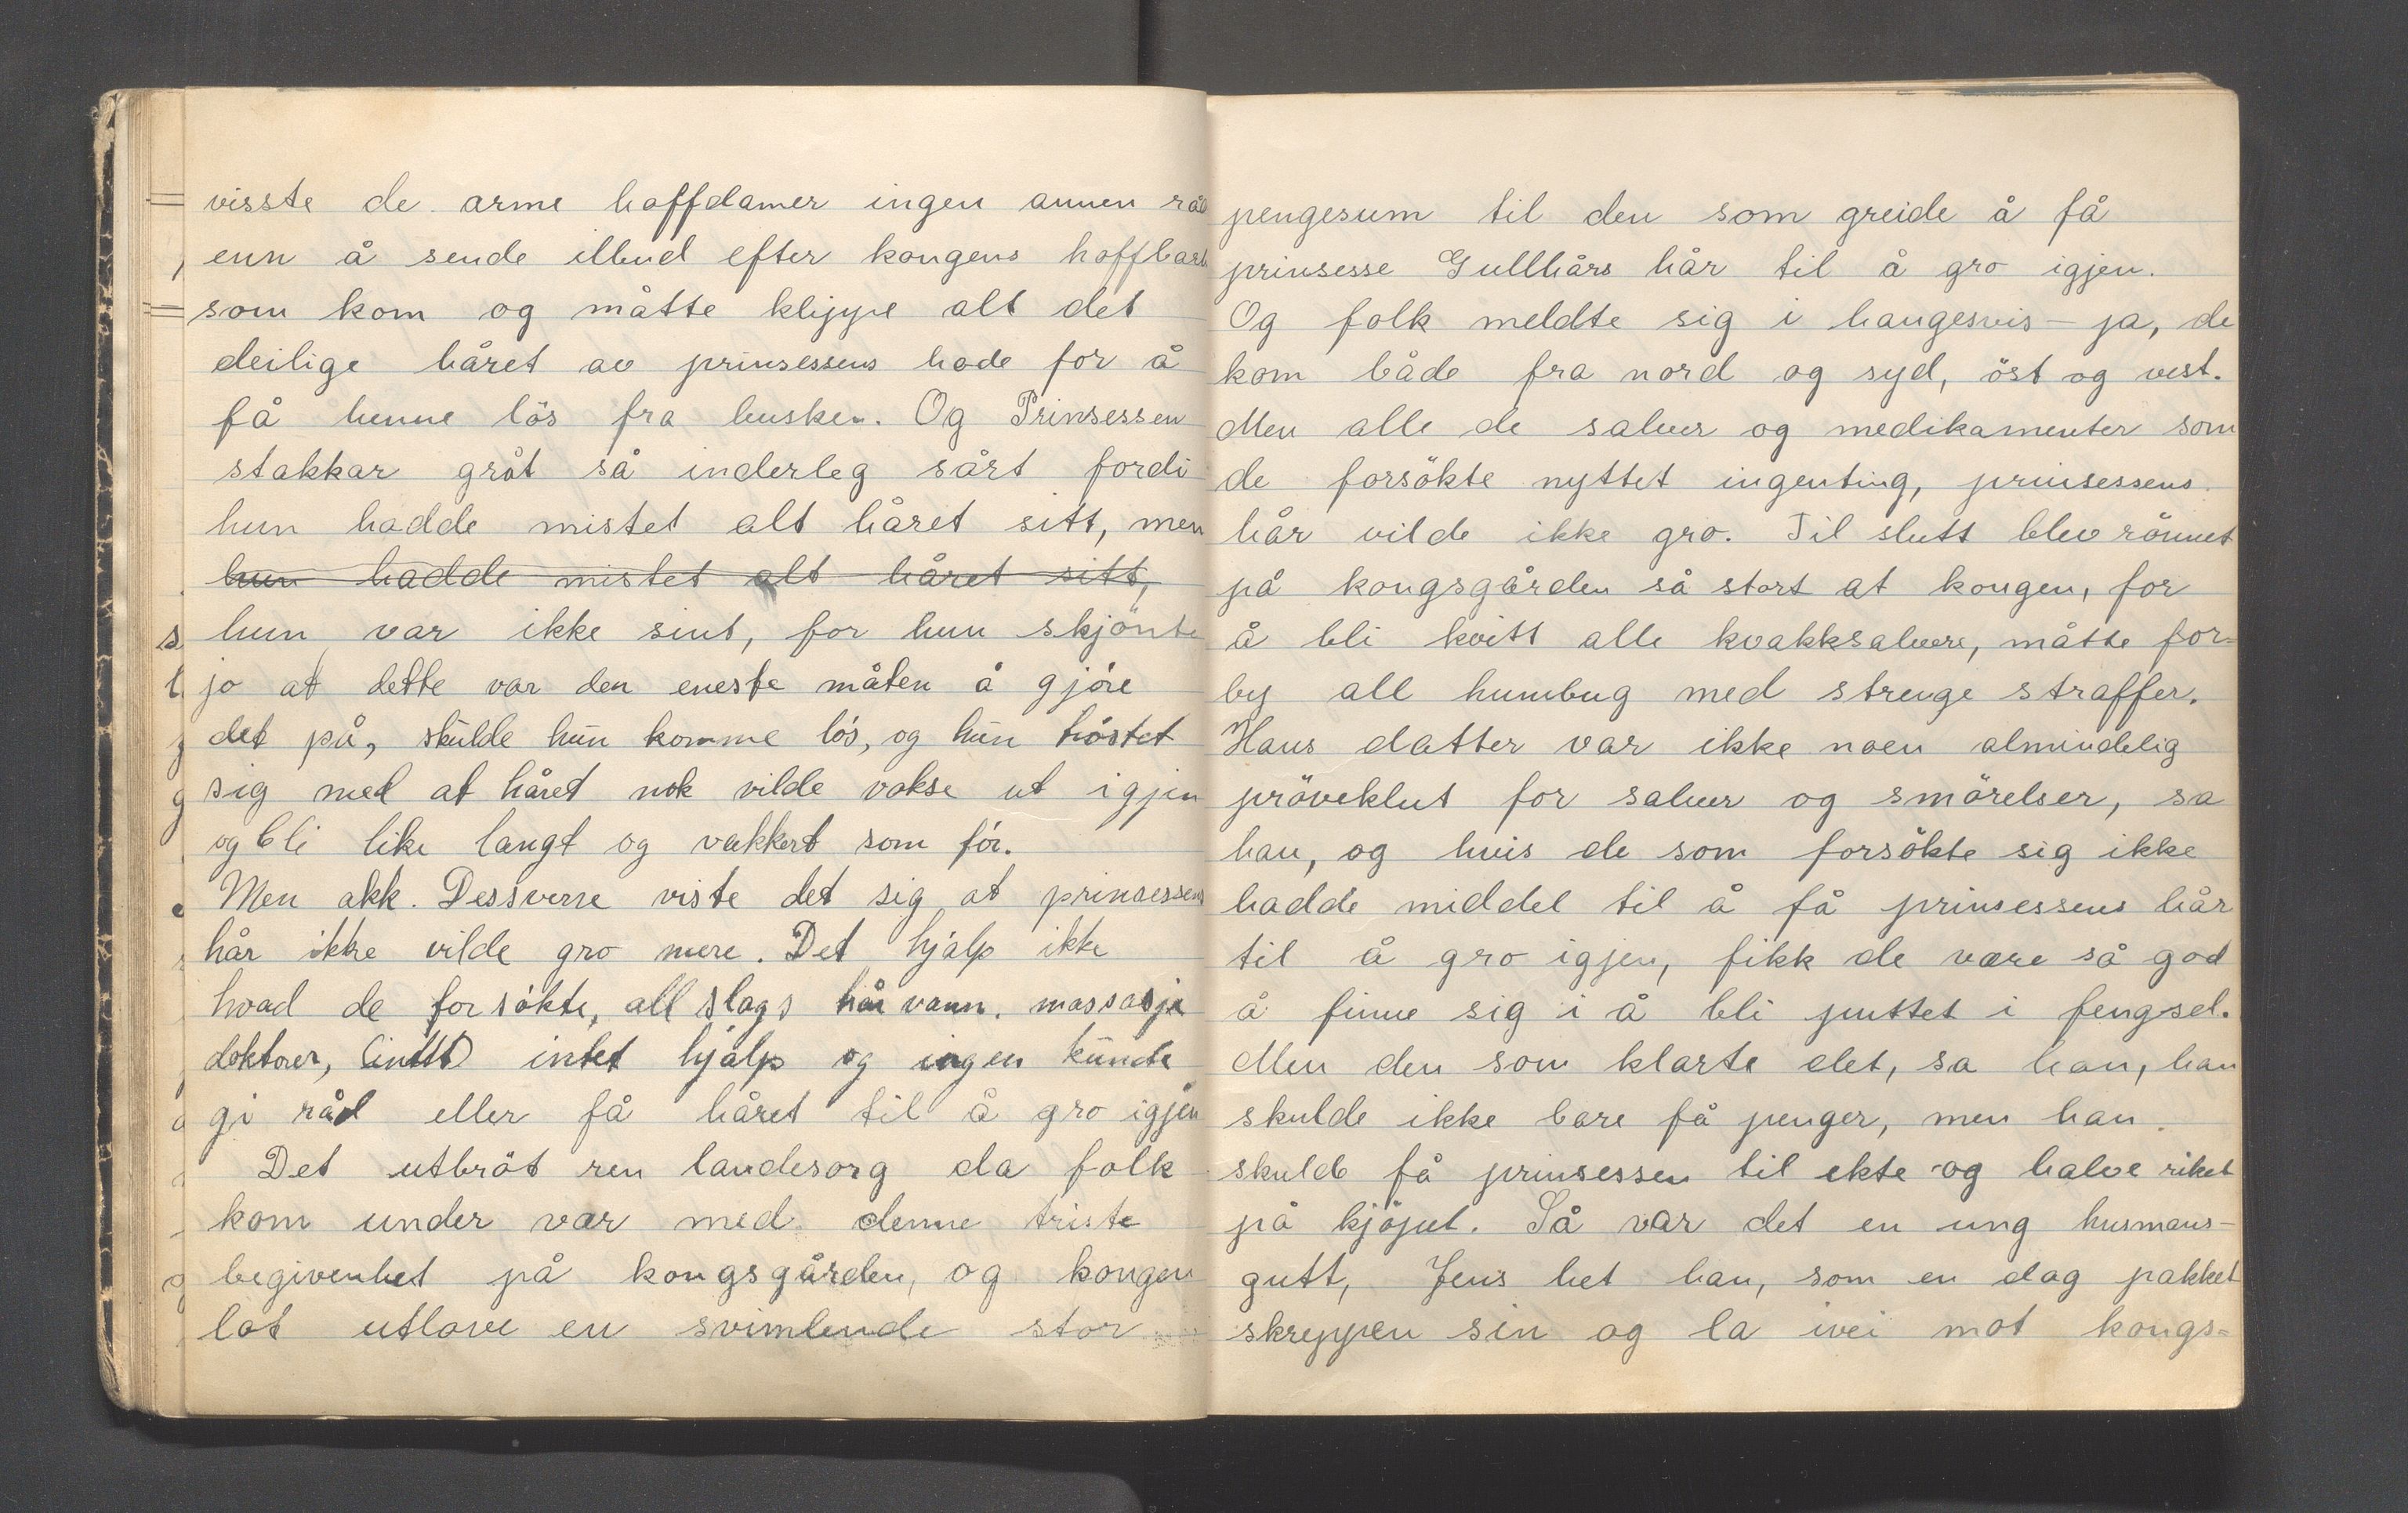 visste de arme hoffdamer ingen annen råd
enn å sende ilbud efter kongens hoffbarb
som kom og måtte klippe alt det
deilige håret av prinsessens hode for å
få henne lös fra busken. Og Prinsessen
stakkar gråt så inderleg sårt fordi
hun hadde mistet alt håret sitt, men
hun hadde mistet alt håret sitt,
hun var ikke sint, for hun skjönte
jo at dette var den eneste måten å gjöre
det på, skulde hun komme lös, og hun tröstet
sig med at håret nok vilde vokse ut igjen
og bli like langt og vakkert som för.
Men akk. Dessverre viste det sig at prinsessens
hår ikke vilde gro mere. Det hjalp ikke
hvad de forsökte, all slags hår vann, massasje
doktorer, (intet) intet hjalp og ingen kunde
gi råd eller få håret til å gro igjen
Det utbröt ren landesorg da folk
kom under vær med denne triste
begivenhet på kongsgården, og kongen
lot utlove en svimlende stor
pengesum til den som greide å få
prinsesse Gullhårs hår til å gro igjen.
Og folk meldte sig i haugesvis – ja, de
kom både fra nord og syd, öst og vest.
Men alle de salver og medikamenter som
de forsökte nyttet ingenting, prinsessens
hår vilde ikke gro. Til slutt blev rönnet
på kongsgården så stort at kongen, for
å bli kvitt alle kvakksalvere, måtte for=
by all humbug med strenge straffer.
Hans datter var ikke noen almindelig
pröveklut for salver og smörelser, sa
han, og hvis de som forsökte sig ikke
hadde middel til å få prinsessens hår
til å gro igjen, fikk de være så god
å finne sig i å bli puttet i fengsel.
Men den som klarte det, sa han, han
skulde ikke bare få penger, men han
skulde få prinsessen til ekte og halve riket
på kjöpet. Så var det en ung husmans-
gutt, Jens het han, som en dag pakket
skreppen sin og la ivei mot kongs=